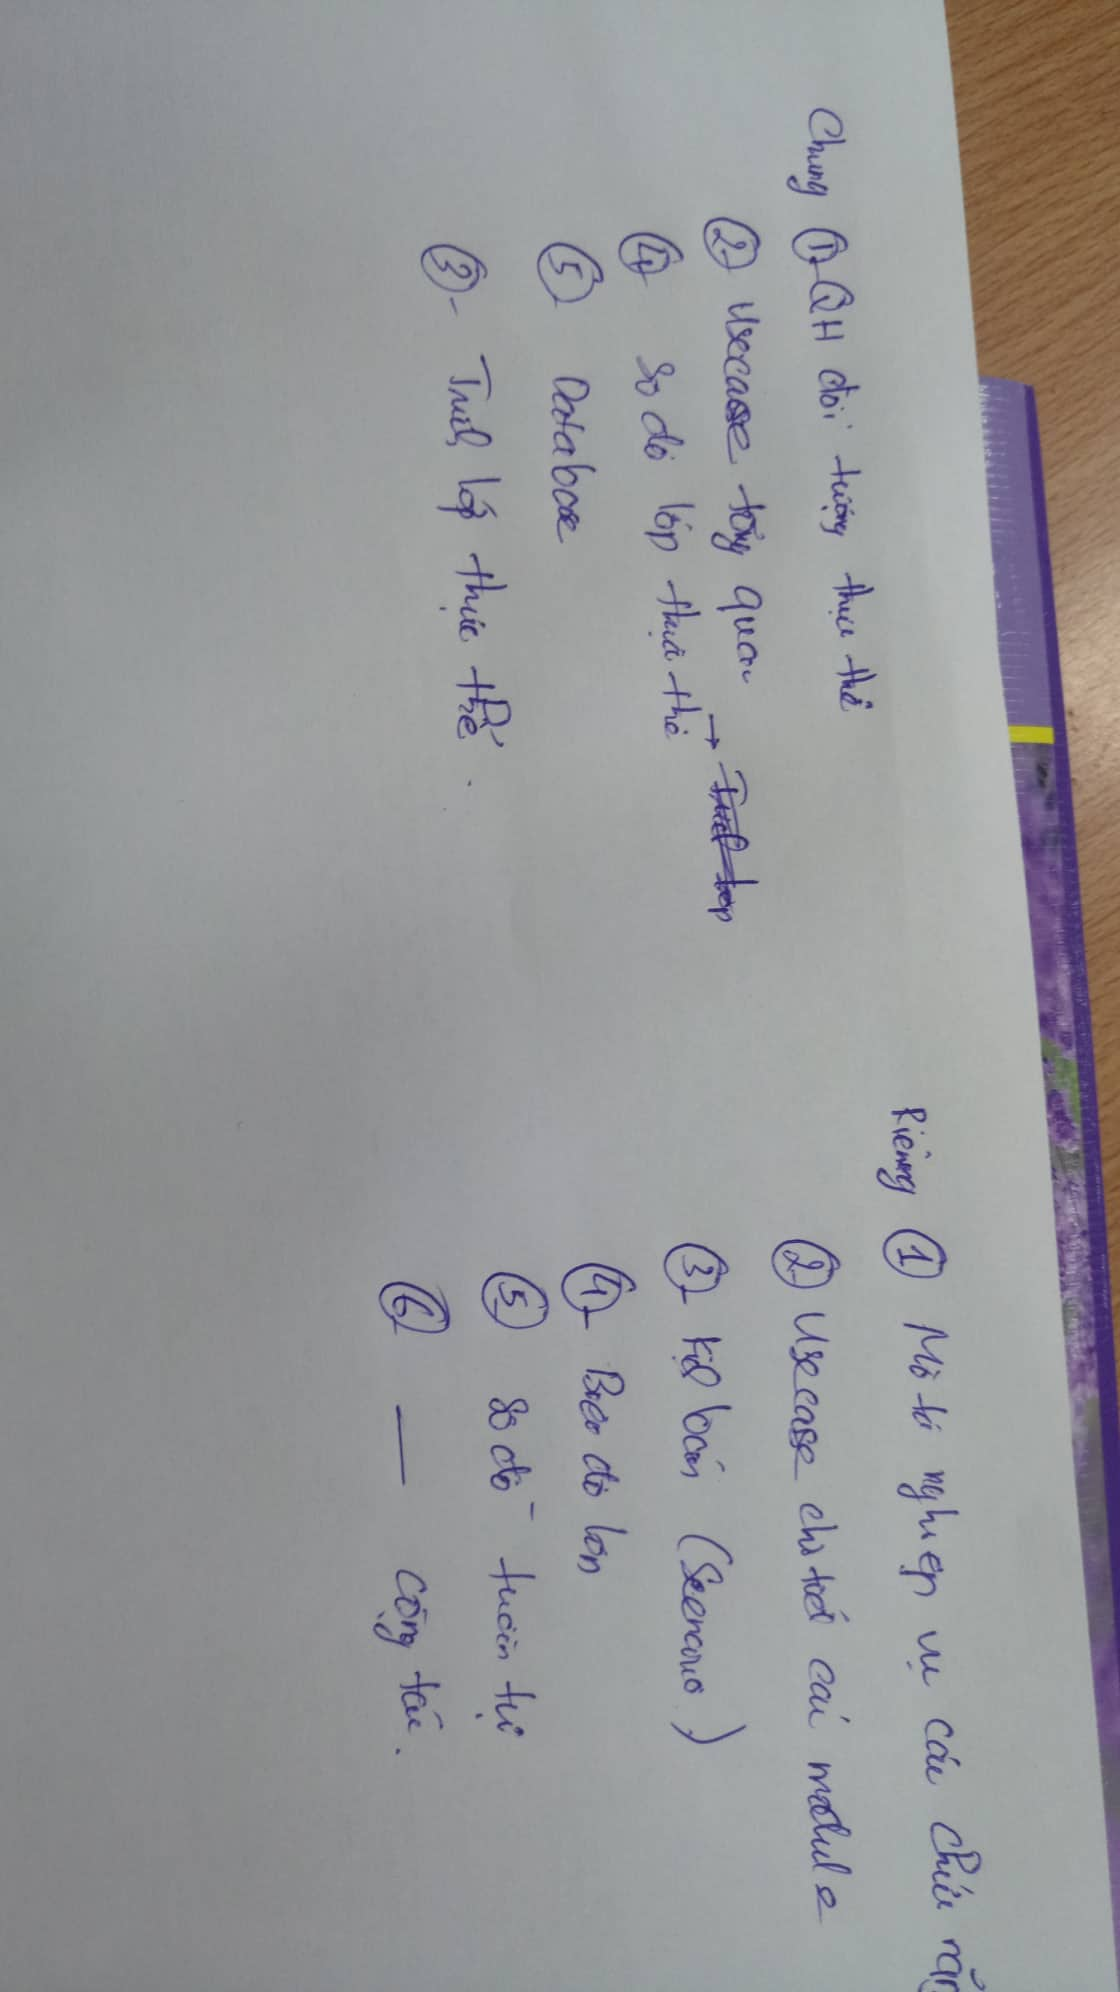 Chung ① QH đối tượng thực thể
② Usecase tổng quan
④ Sơ đồ lớp thực thể →
⑤ Database
③ - Trích lớp thực thể.
Riêng ① Mô tả nghiệp vụ các chức năng
② Usecase chi tiết cái module
③ Kịch bản (Scenario)
④ Biểu đồ lớp
⑤ Sơ đồ tuần tự
⑥ — cộng tác.